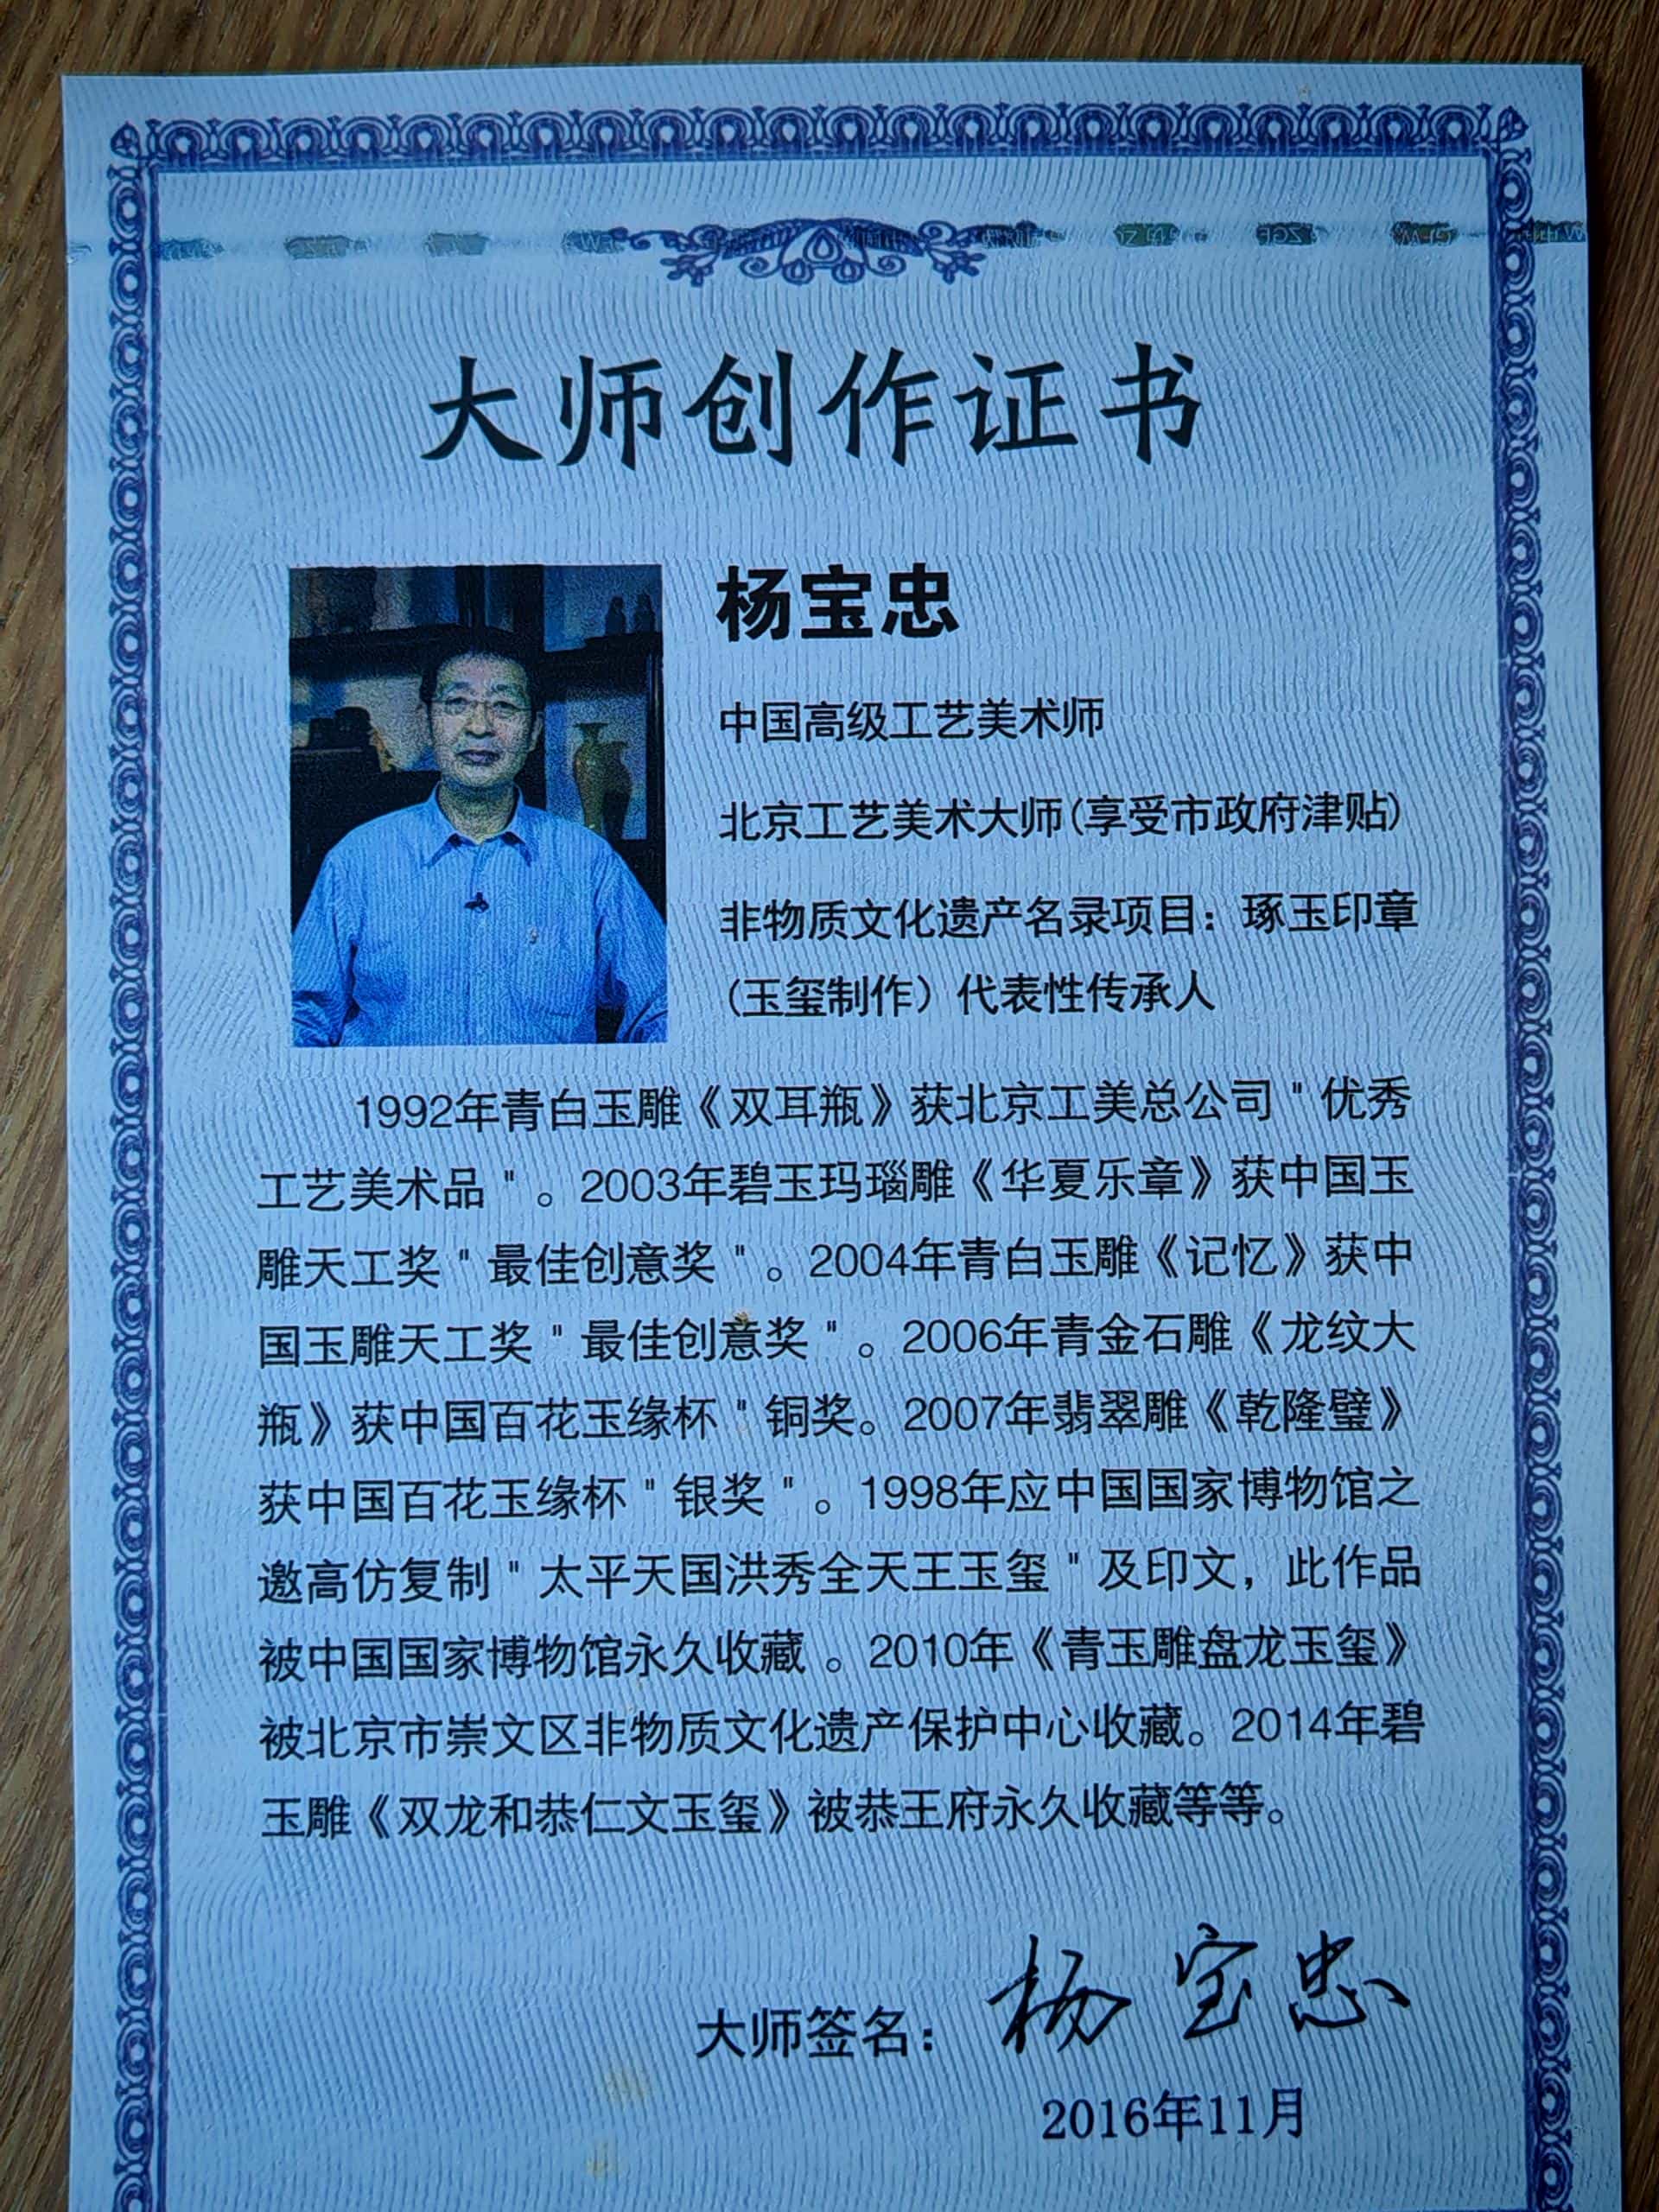 大师创作证书
杨宝忠
中国高级工艺美术师
北京工艺美术大师(享受市政府津贴)
非物质文化遗产名录项目：琢玉印章
(玉玺制作）代表性传承人
1992年青白玉雕《双耳瓶》获北京工美总公司"优秀
工艺美术品"。2003年碧玉玛瑙雕《华夏乐章》获中国玉
雕天工奖"最佳创意奖"。2004年青白玉雕《记忆》获中
国玉雕天工奖"最佳创意奖"。2006年青金石雕《龙纹大
瓶》获中国百花玉缘杯"铜奖。2007年翡翠雕《乾隆璧》
获中国百花玉缘杯"银奖"。1998年应中国国家博物馆之
邀高仿复制"太平天国洪秀全天王玉玺"及印文，此作品
被中国国家博物馆永久收藏。2010年《青玉雕盘龙玉玺》
被北京市崇文区非物质文化遗产保护中心收藏。2014年碧
玉雕《双龙和恭仁文玉玺》被恭王府永久收藏等等。
大师签名：杨宝忠
2016年11月